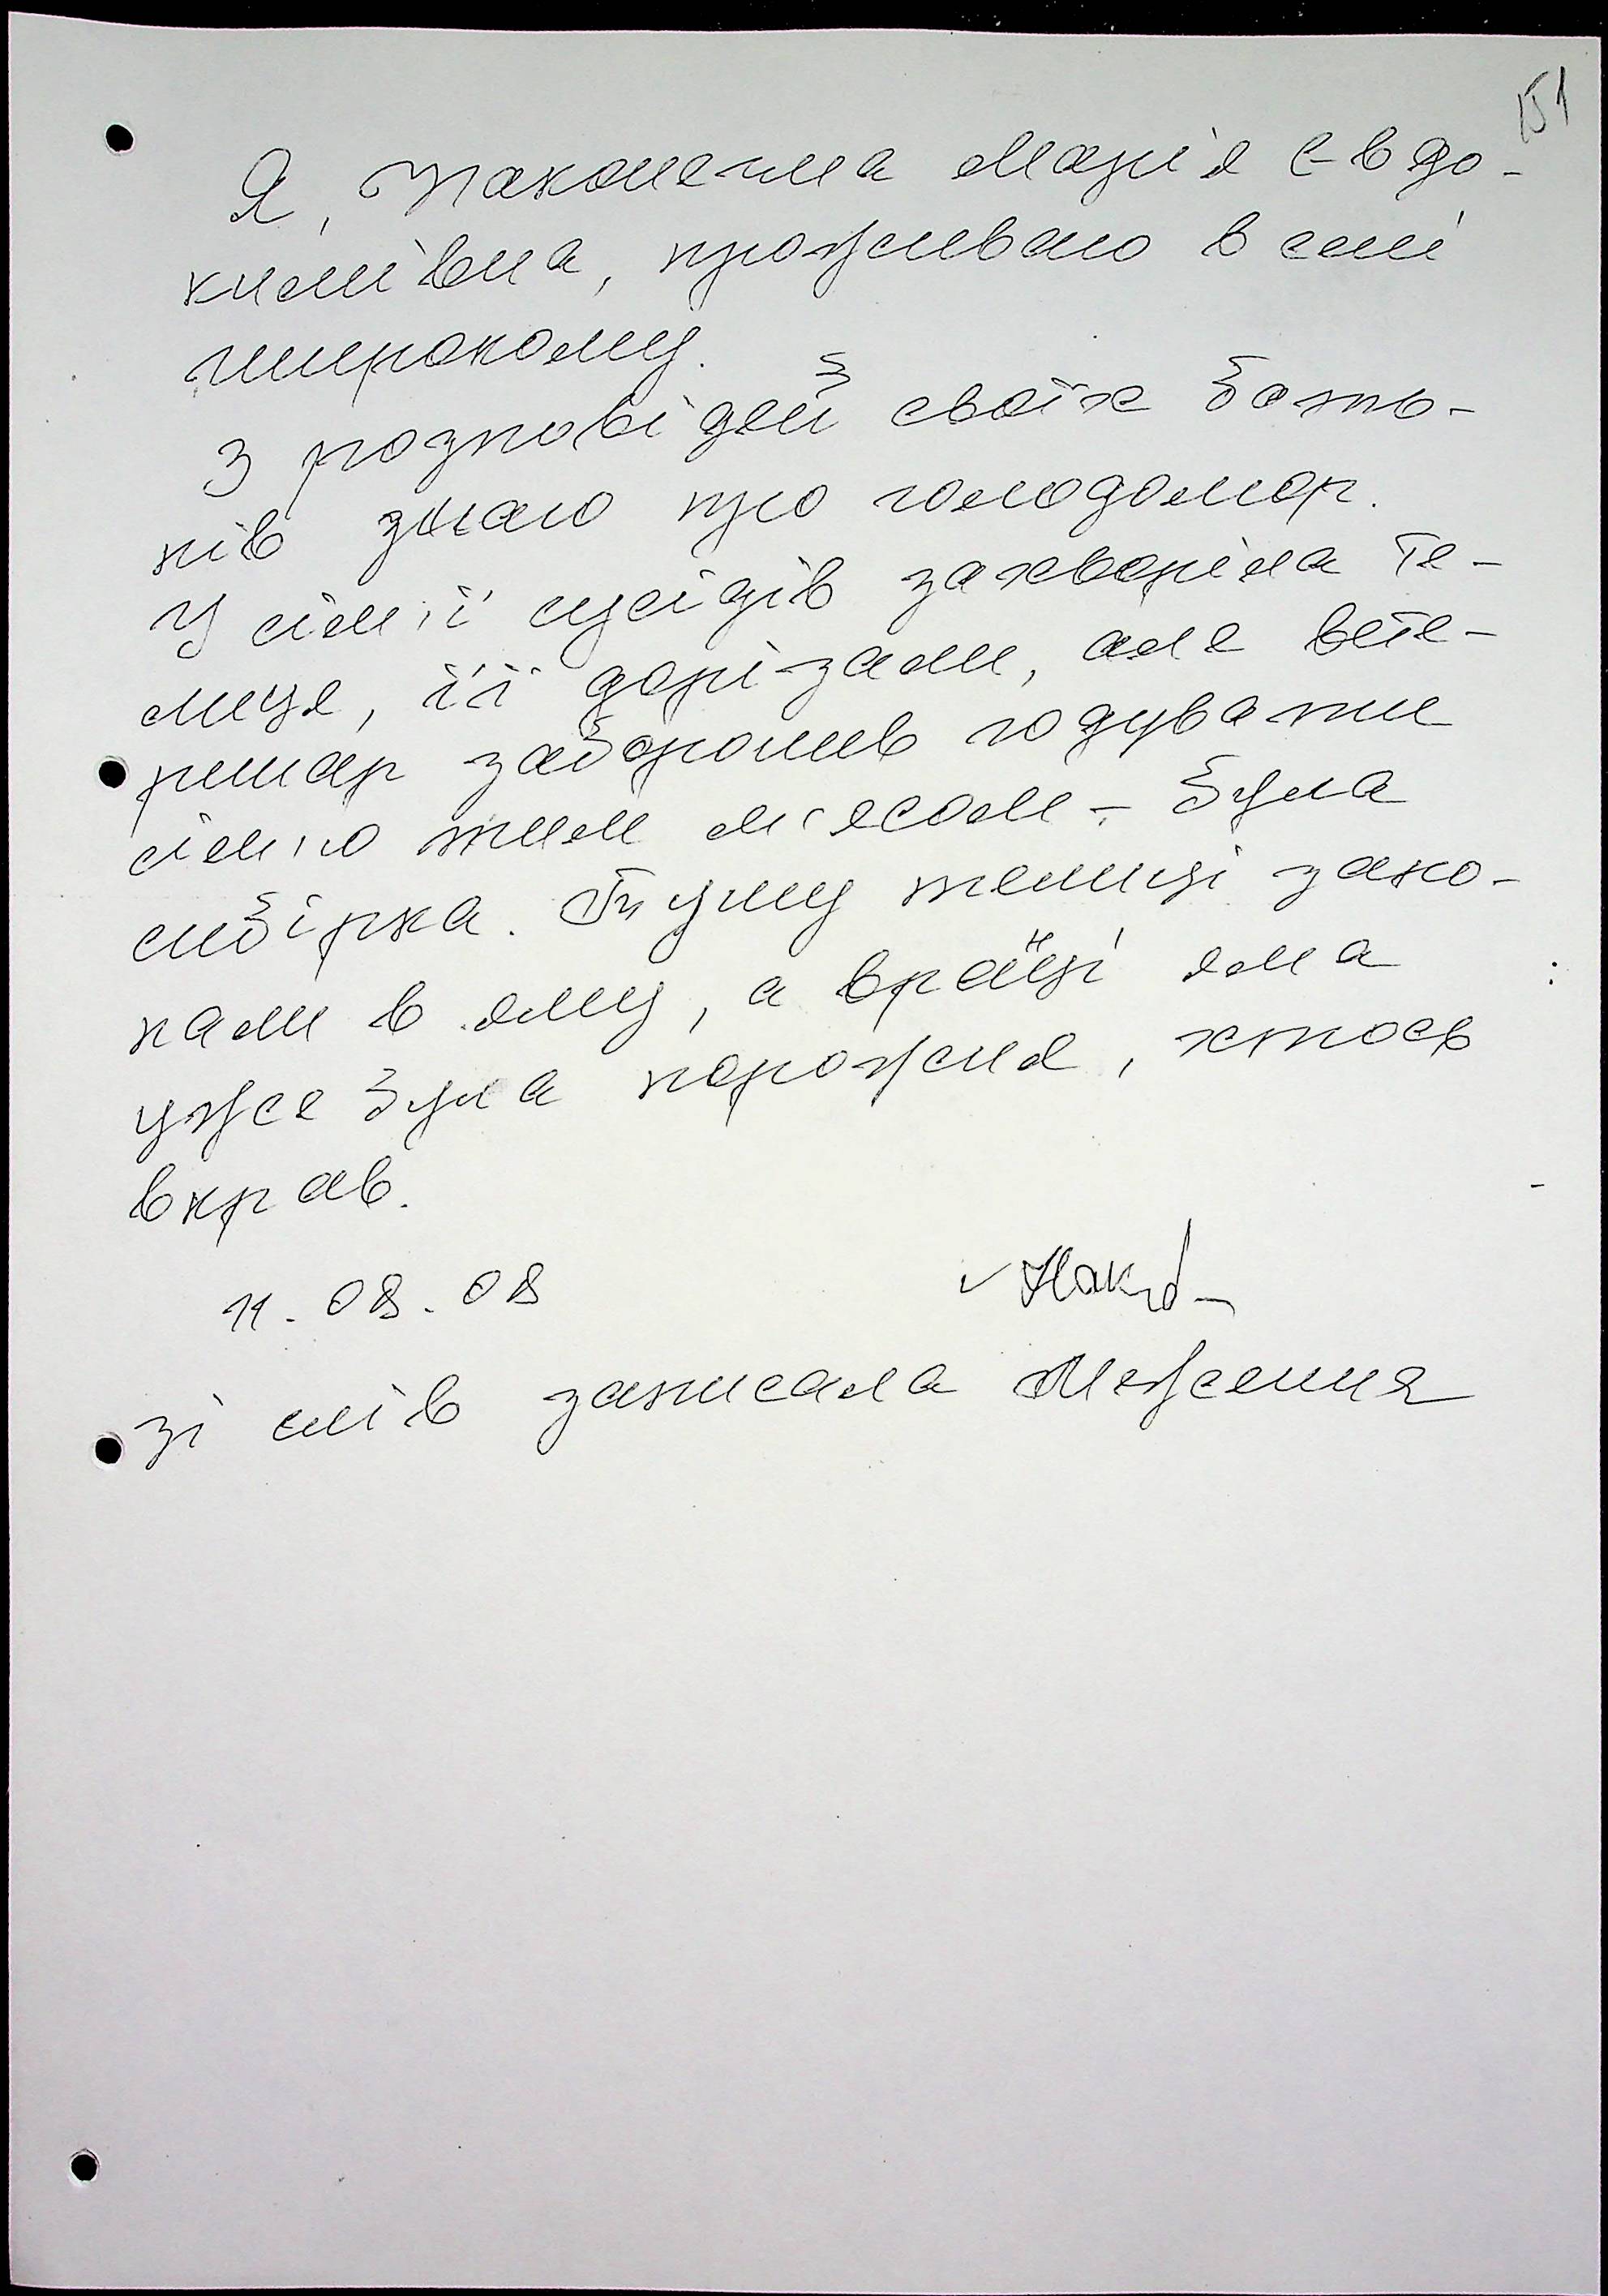 151
Я, Наконечна Марія Євдо-
кимівна, проживаю в селі
Широкому.
З розповідей своїх бать-
ків знаю про голодомор.
У сім'ї сусідів захворіла те-
лиця, її дорізали, але вете-
ринар заборонив годувати
сім'ю тим м'ясом – була
сибірка. Тушу телиці зако-
пали в яму, а вранці яма
уже була порожня, хтось
вкрав.
11.08.08
зі слів записала Меженна